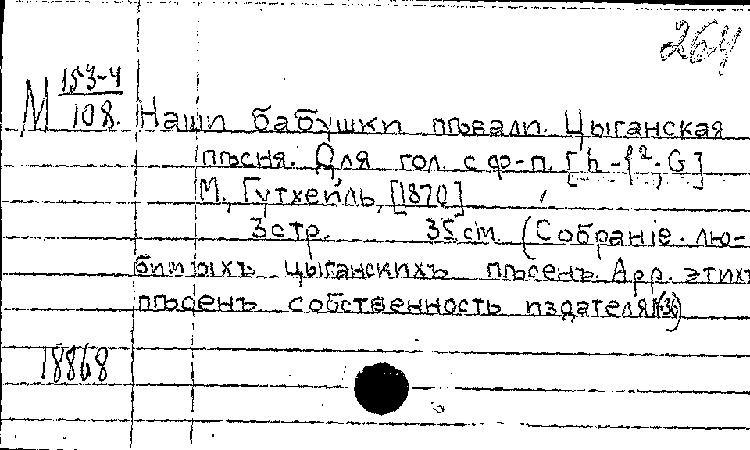 264
М 153-4
108.
Наши бабушки пѣвали. Цыганская
пѣсня. Для гол. с ф-п. [h-f²; G]
М., Гутхейль, [1870]
3 стр. 35 cm (Собраніе лю-
бимыхъ цыганскихъ пѣсенъ. Арр. этихъ
пѣсенъ собственность издателя)
18868